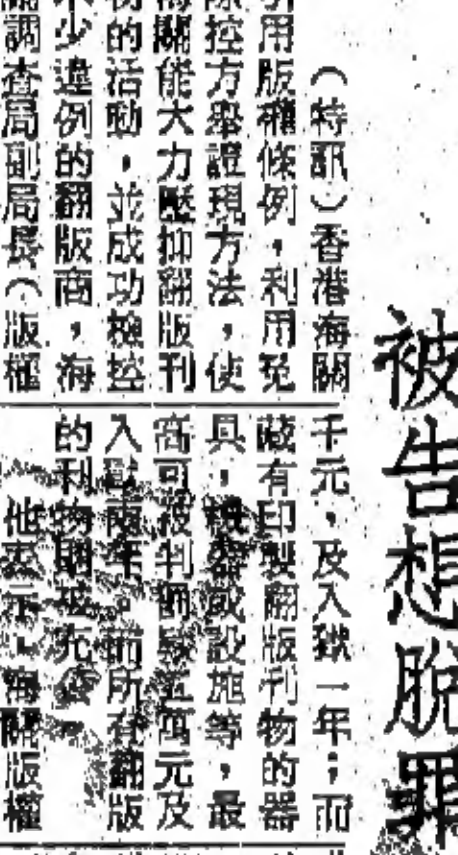 被告想脫罪
（特訊）香港海關
引用版權條例，利用免
除控方舉證現方法，使
海關能大力壓抑翻版刊
物的活動，並成功檢控
不少違例的翻版商，海
關調查局副局長（版權
千元，及入獄一年；而
藏有印製翻版刊物的器
具，機器或設施等，最
高可被判罰款五萬元及
入獄兩年。而所有翻版
的刊物則被充公。
他表示，海關版權